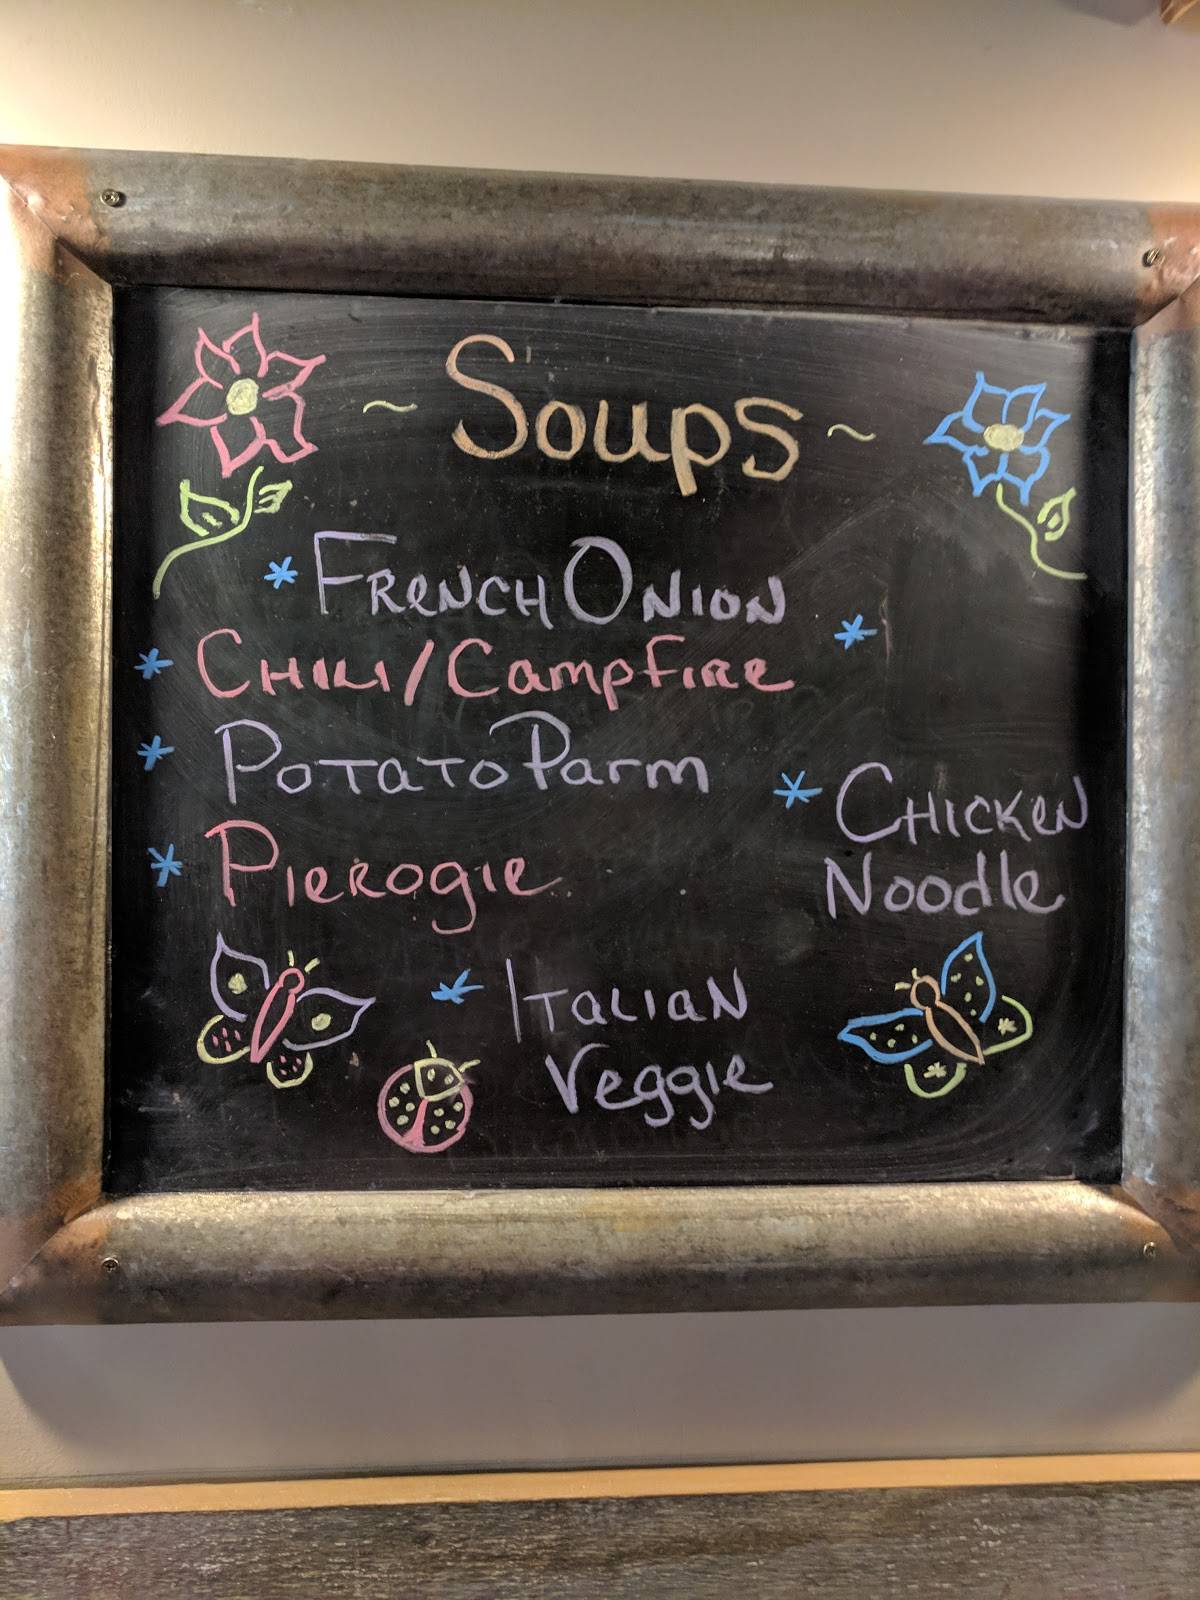 ~ Soups ~
* French Onion
* Chili/Campfire
*
* Potato Parm
* Chicken
Noodle
* Pierogie
* Italian
Veggie